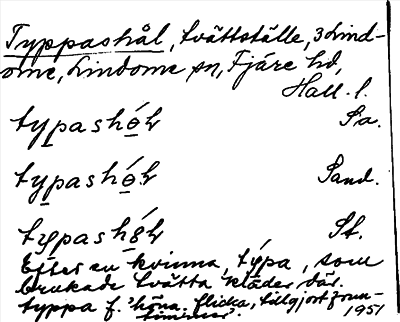 Typpashål, tvättställe, 3 Lind-
ome, Lindome sn, Fjäre hd,
Hall. l.
typashó̱ḷ Sa.
typashó̱ḷ Sand.
typashó̱ḷ St.
Efter en kvinna, týpa, som
brukade tvätta kläder där.
typpa f. 'höna, flicka, tillgjort frun-
timmer'. 1951